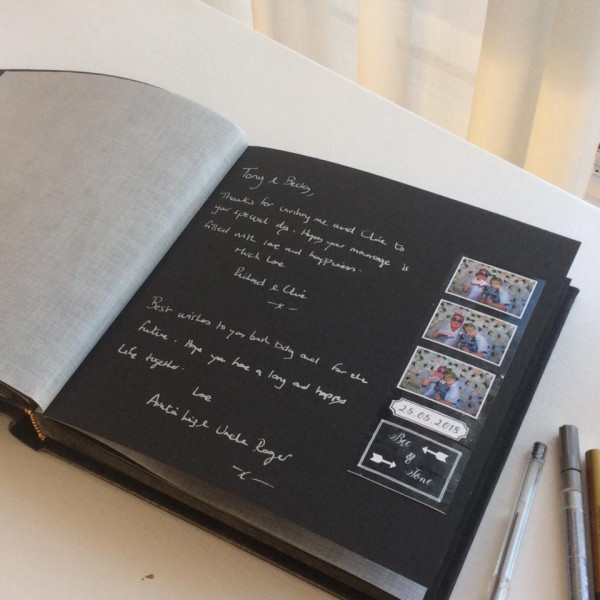 Tony & Becky,
Thanks for inviting me and Clive to
your special day. Hope your marriage is
filled with love and happiness.
Much Love
Richard & Clive
-x-
Best wishes to you both today and for the
future. Hope you have a long and happy
life together.
Love
Auntie Uncle Roger
-x-
25.05.2018
&
Tone